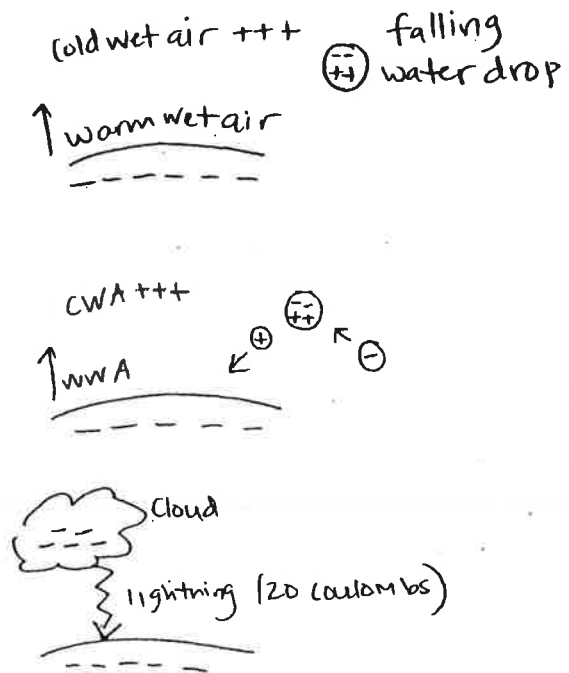 cold wet air +++
falling
water drop
--
++
warm wet air
------
CWA +++
--
++
+
-
WWA
------
Cloud
-- --
lightning (20 coulombs)
-----